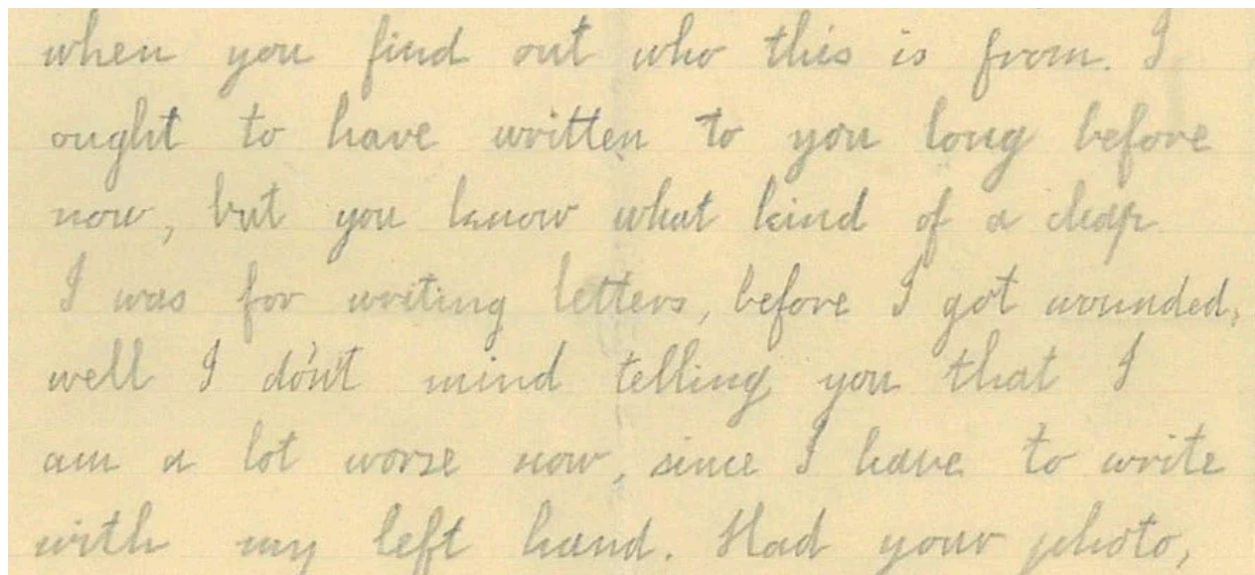 when you find out who this is from. I
ought to have written to you long before
now, but you know what kind of a chap
I was for writing letters, before I got wounded,
well I do'nt mind telling you that I
am a lot worse now, since I have to write
with my left hand. Had your photo,